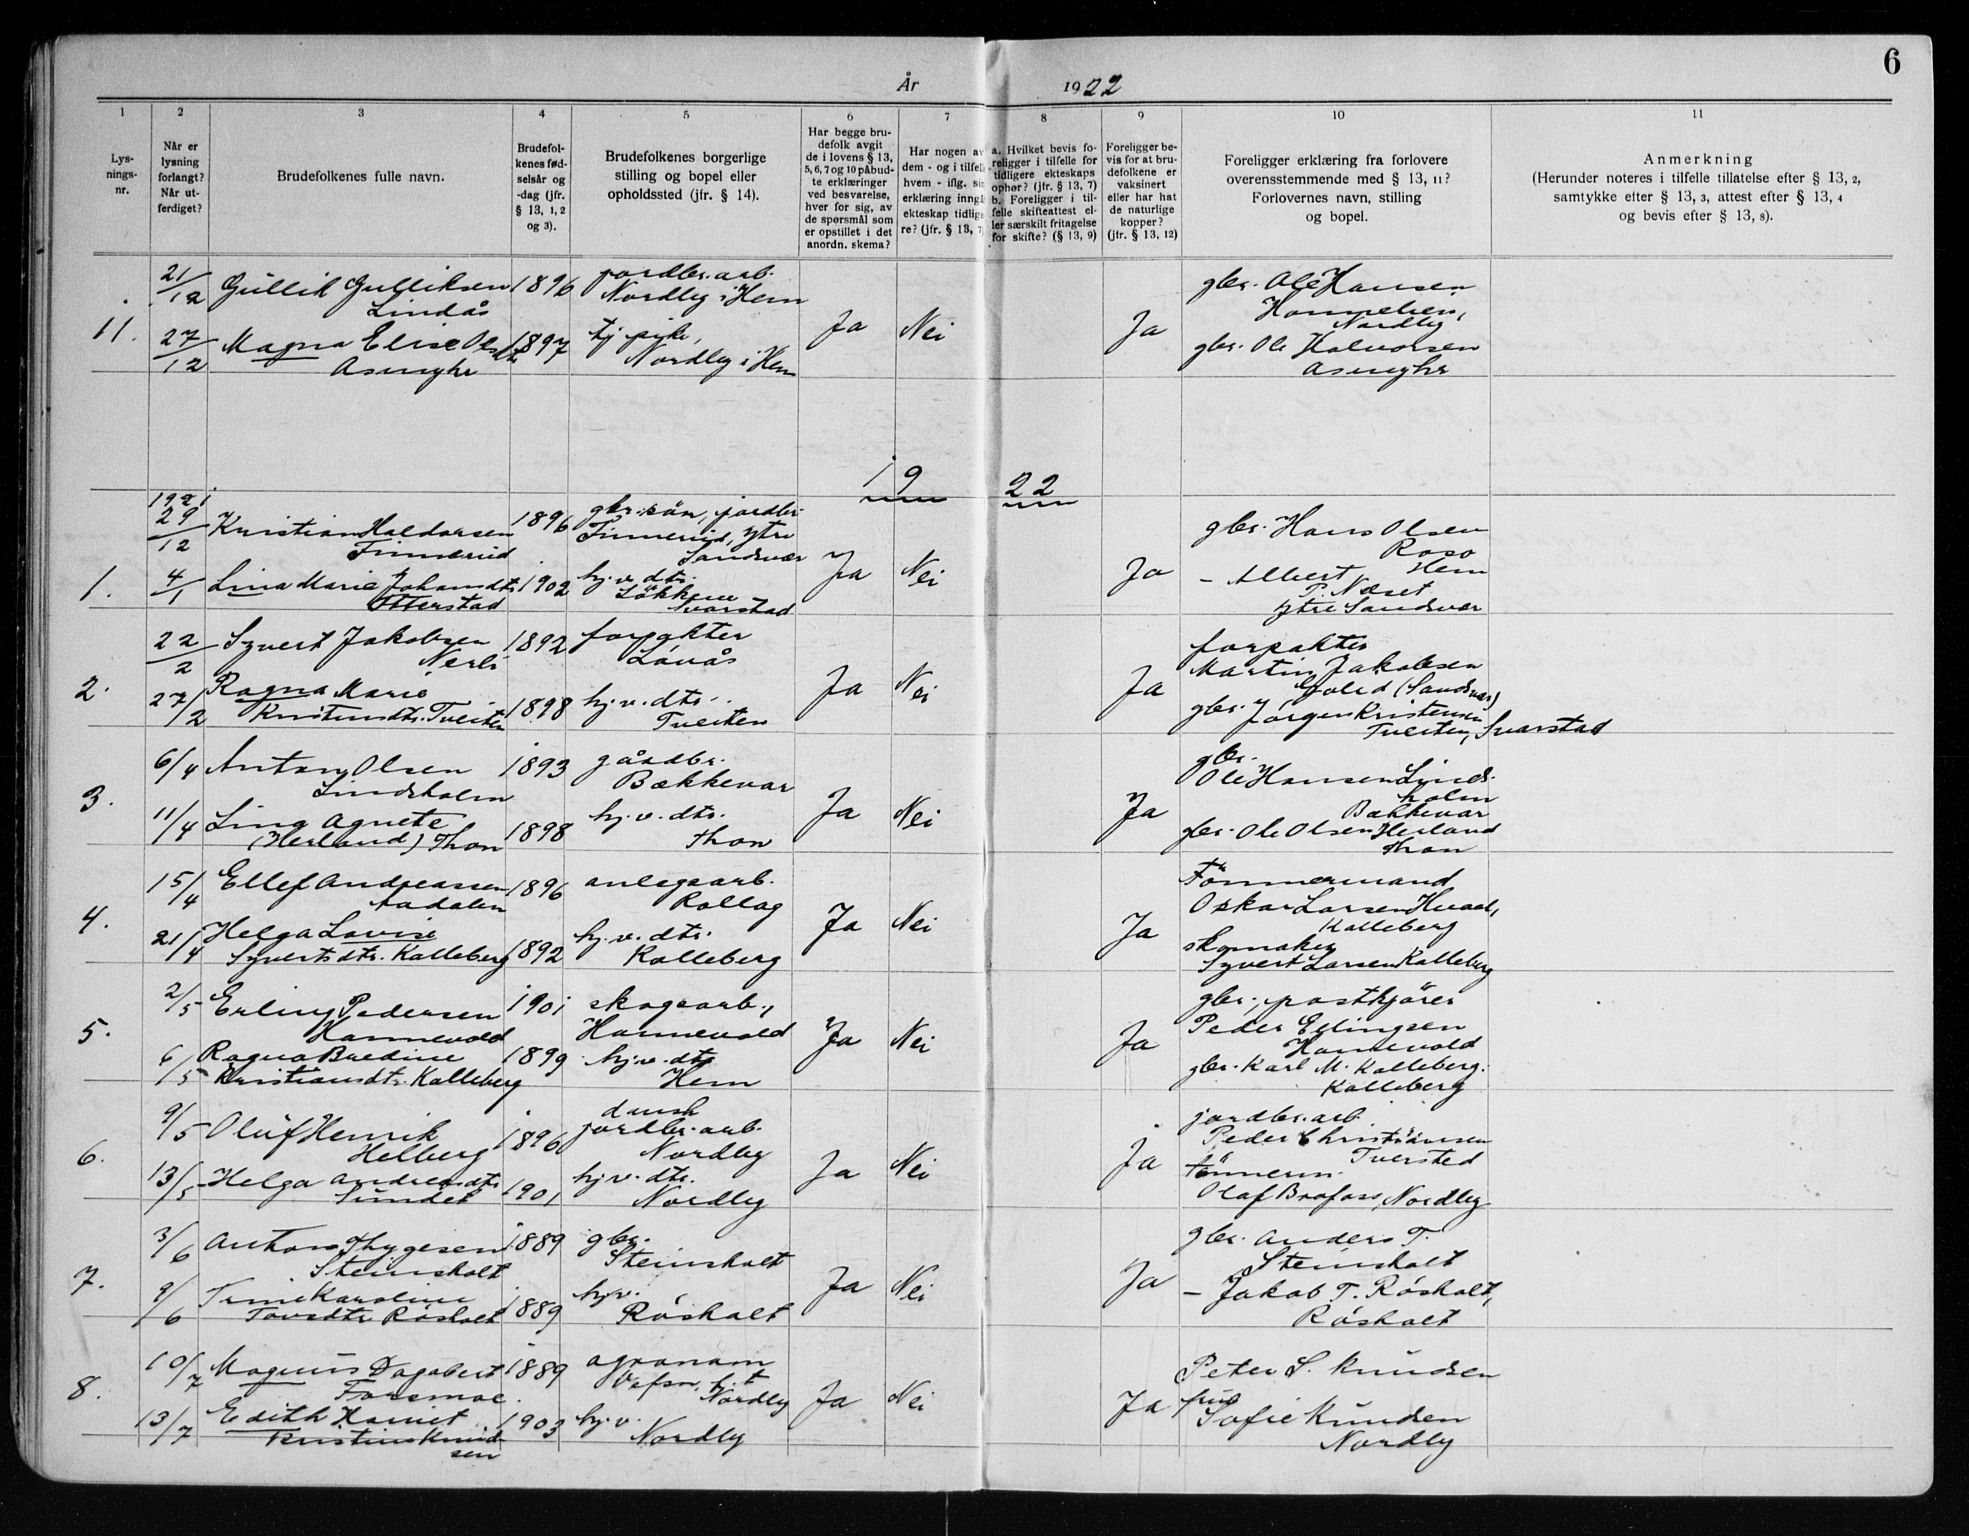 6
År 1922
1 2 3 4 5 6 7 8 9 10 11
Lys-
nings-
nr.
Når er
lysning
forlangt?
Når ut-
ferdiget?
Brudefolkenes fulle navn.
Brudefol-
kenes fød-
selsår og
-dag (jfr.
§ 13, 1, 2
og 3).
Brudefolkenes borgerlige
stilling og bopel eller
opholdssted (jfr. § 14).
Har begge bru-
defolk avgit
de i lovens § 13,
5, 6, 7 og 10 påbud-
te erklæringer
ved besvarelse,
hver for sig, av
de spørsmål som
er opstillet i det
anordn. skema?
Har nogen av
dem - og i tilfelle
hvem - iflg. sin
erklæring inngå
ekteskap tidlige
re? (jfr. § 13, 7)
a. Hvilket bevis fo-
religger i tilfelle for
tidligere ekteskaps
ophør? (jfr. § 13, 7)
b. Foreligger i til-
felle skifteattest el-
ler særskilt fritagelse
for skifte? (§ 13, 9)
Foreligger be-
vis for at bru-
defolkene er
vaksinert
eller har hat
de naturlige
kopper?
(jfr. § 13, 12)
Foreligger erklæring fra forlovere
overensstemmende med § 13, 11?
Forlovernes navn, stilling
og bopel.
Anmerkning
(Herunder noteres i tilfelle tillatelse efter § 13, 2,
samtykke efter § 13, 3, attest efter § 13, 4
og bevis efter § 13, 8).
11.
21/12 Gullik Gulliksen 1896 jordbr. arb.
Lindås Nordby i Hem
27/12 Magna Elise Olsdtr 1897 tj. pike,
Nordby i Hem
Ja Nei Ja
gbr. Ole Hansen
Nordby
gbr. Ole Halvorsen
1922
1.
1921
29/12 Kristian Haldorsen 1896 gbr. søn, jordbr.
Finnerud Finnerud, ytre
Sandsvær
4/1 Lina Marie Johansdtr. 1902 hj. v. dtr.
Otterstad Løkken
Svarstad
Ja Nei Ja
gbr. Hans Olsen
Hem
- Albert
P. Næset
ytre Sandsvær
2.
22/2 Syvert Jakobsen 1892 forpakter
Nerli Løvås
27/2 Ragna Marie 1898 hj. v. dtr.
Kristensdtr. Tveiten Tveiten
Ja Nei Ja
forpakter
Martin Jakobsen
(Sandsvær)
gbr. Jørgen Kristensen
Tveiten, Svarstad
3.
6/4 Anton Olsen 1893 gårdbr.
Lindsholm Bækkevar
11/4 Lina Agnete 1898 hj. v. dtr.
(Herland) Thon Thon
Ja Nei Ja
gbr.
Ole Hansen Linds-
holm
Bækkevar
gbr. Ole Olsen Herland
Thon
4.
15/4 Ellef Andreassen 1896 anlegsarb.
Aadalen Rollag
21/4 Helga Lovise 1892 hj. v. dtr.
Syvertsdtr. Kalleberg Kalleberg
Ja Nei Ja
Tömmermand
Oskar Larsen
Kalleberg
skomaker
Syvert Larsen Kalleberg
5.
2/5 Erling Pedersen 1901 skogsarb.,
Hannevold Hannevold
6/5 Ragna Bredine 1899 hj. v. dtr
Kristiansdtr. Kalleberg Hem
Ja Nei Ja
gbr., postkjører
Peder Ellingsen
Hannevold
gbr. Karl M. Kalleberg.
Kalleberg
6.
9/5 Oluf Henrik 1896 dansk
jordbr. arb.
Helberg Nordby
13/5 Helga Andreasdtr 1901 hj. v. dtr.
Sundet Nordby
Ja Nei Ja
jordbr. arb.
Peder Christiansen
Tversted
tömmerm.
Olaf Brofoss, Nordby
7.
3/6 Anton Thygesen 1889 gbr.
Steinsholt Steinsholt
9/6 Trine Karoline 1889 hj. v.
Tovsdtr Røsholt Røsholt
Ja Nei Ja
gbr. Anders T.
Steinsholt
- Jakob T. Røsholt,
Røsholt
8.
10/7 Magnus Dagobert 1889 agronom
Forsmoe. Vefsn, f. t.
Nordby
13/7 Edith Harriet 1903 hj. v.
Kristine Knud-
sen Nordby
Ja Nei Ja
Peter S. Knudsen
frue
Sofie Knudsen
Nordby